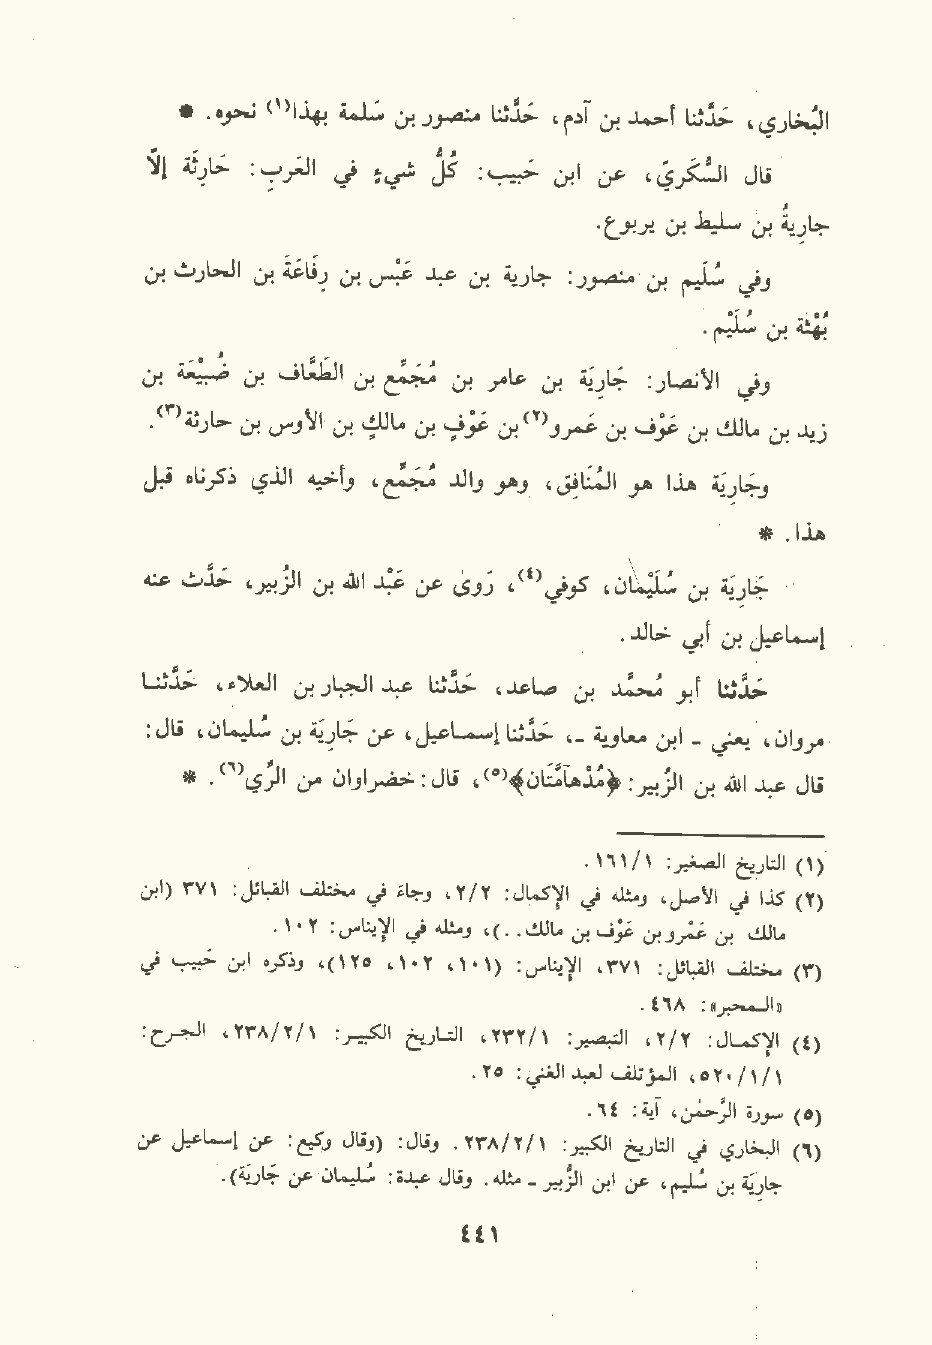 البُخاري، حَدَّثنا أحمد بن آدم، حَدَّثنا منصور بن سَلمة بهذا(١) نحوه. *
قال السُّكَّريّ، عن ابن حَبيب: كُلُّ شيءٍ في العَربِ: حَارِثَة إلاَّ
جارِيةُ بن سليط بن يربوع.
وفي سُلَيم بن منصور: جارية بن عبد عَبْس بن رِفَاعَة بن الحارث بن
بُهْثة بن سُلَيْم.
وفي الأنصار: جَارِيَة بن عامر بن مُجَمِّع بن الطَّعَّاف بن ضُبَيْعَة بن
زيد بن مالك بن عَوْف بن عَمرو(٢) بن عَوْفِ بن مالكِ بن الأوس بن حارثة(٣).
وجَارِيَة هذا هو المُنَافِق، وهو والد مُجَمِّع، وأخيه الذي ذكرناه قبل
هذا. *
جَارِيَة بن سُلَيْمان، كوفي(٤)، رَوىٰ عن عَبْد الله بن الزُّبير، حَدَّث عنه
إسماعيل بن أبي خالد.
حَدَّثنا أبو مُحمَّد بن صاعد، حَدَّثنا عبد الجبار بن العلاء، حَدَّثنا
مروان، يعني ـ ابن معاوية ـ، حَدَّثنا إسماعيل، عن جَارِيَة بن سُليمان، قال:
قال عبد الله بن الزُّبير: ﴿مُدْهآمَّتَان﴾(٥)، قال: خضراوان من الرِّي(٦). *
(١) التاريخ الصغير: ١٦١/١.
(٢) كذا في الأصل، ومثله في الإكمال: ٢/٢، وجاءَ في مختلف القبائل: ٣٧١ (ابن
مالك بن عَمْرو بن عَوْف بن مالك..)، ومثله في الإيناس: ١٠٢.
(٣) مختلف القبائل: ٣٧١، الإيناس: (١٠١، ١٠٢، ١٢٥)، وذكره ابن حَبيب في
«المحبر»: ٤٦٨.
(٤) الإكمال: ٢/٢، التبصير: ٢٣٢/١، التاريخ الكبير: ٢٣٨/٢/١، الجرح:
٥٢٠/١/١، المؤتلف لعبد الغني: ٢٥.
(٥) سورة الرَّحمٰن، آية: ٦٤.
(٦) البخاري في التاريخ الكبير: ٢٣٨/٢/١. وقال: (وقال وكيع: عن إسماعيل عن
جارِيَة بن سُليم، عن ابن الزُّبير ـ مثله. وقال عبدة: سُليمان عن جَارِيَة).
٤٤١